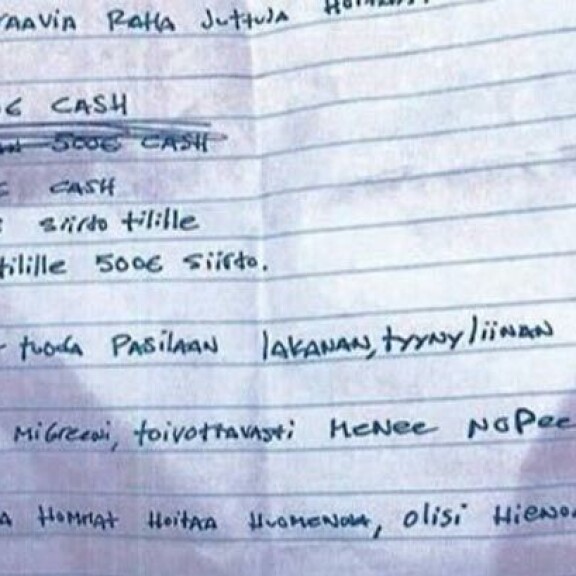 RAHA JUTTUJA
€ CASH
500€ CASH
CASH
siirto tilille
tilille 500€ siirto.
tuoda PASILAAN LAKANAN, tyynyliinan
Migreeni, toivottavasti MENEE NOPEE
HOMMAT HOITAA HUOMENNA, olisi HIENO